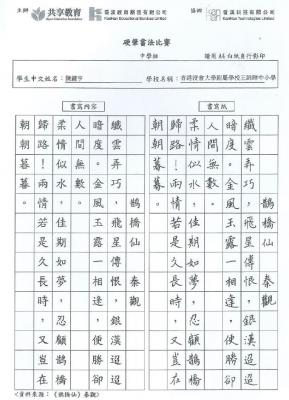 主辦
共享教育
看漢教育服務有限公司
KanHan Educational Services Limited
協辦
看漢科技有限公司
KanHan Technologies Limited
硬筆書法比賽
中學組
請用A4白紙自行影印
學生中文姓名：
學校名稱：香港浸會大學附屬學校王錦輝中小學
書寫內容
鵲橋仙 秦觀
纖雲弄巧，飛星傳恨，銀漢迢迢
暗度。金風玉露一相逢，便勝卻
人間無數。
柔情似水，佳期如夢，忍顧鵲橋
歸路！兩情若是久長時，又豈在
朝朝暮暮。
書寫紙
鵲橋仙 秦觀
纖雲弄巧，飛星傳恨，銀漢迢迢
暗度。金風玉露一相逢，便勝卻
人間無數。
柔情似水，佳期如夢，忍顧鵲橋
歸路！兩情若是久長時，又豈在
朝朝暮暮。
<資料來源：《鵲橋仙》秦觀>